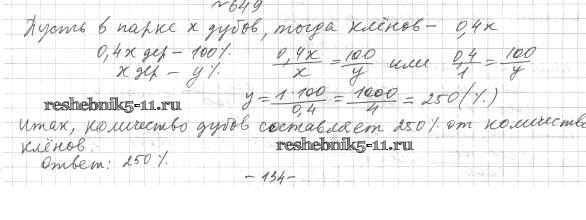 №649
Пусть в парке x дубов, тогда клёнов - 0,4x
0,4x дер - 100%
x дер - y%
0,4x/x = 100/y или 0,4/1 = 100/y
y = 1·100/0,4 = 1000/4 = 250(%)
reshebnik5-11.ru
Итак, количество дубов составляет 250% от количества
клёнов.
reshebnik5-11.ru
Ответ: 250%.
- 134 -